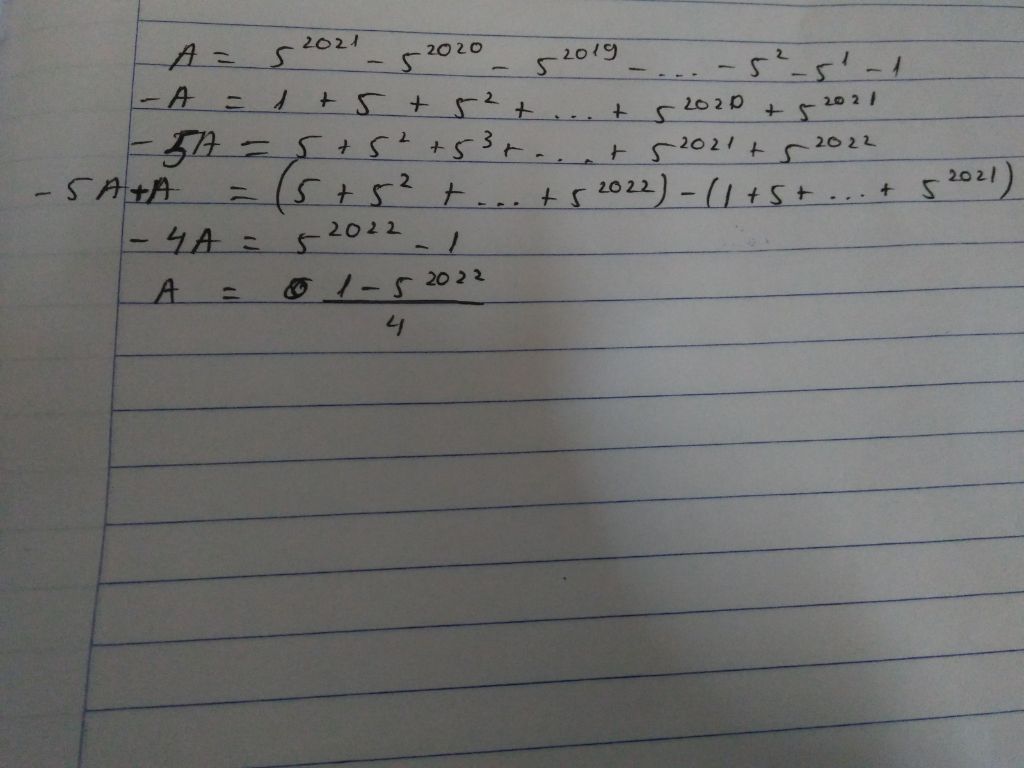 A = 5^2021 - 5^2020 - 5^2019 - ... - 5^2 - 5^1 - 1
- A = 1 + 5 + 5^2 + ... + 5^2020 + 5^2021
- 5A = 5 + 5^2 + 5^3 + .... + 5^2021 + 5^2022
- 5A + A = (5 + 5^2 + ... + 5^2022) - (1 + 5 + ... + 5^2021)
- 4A = 5^2022 - 1
A = 1 - 5^2022
4